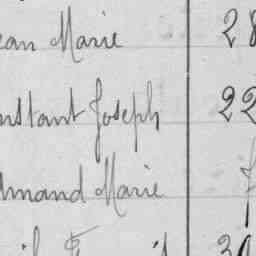 ean Marie 28
nstant Joseph 22
dmand Marie
30